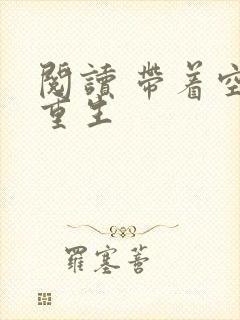 閱讀 帶着空
重生
羅塞菩